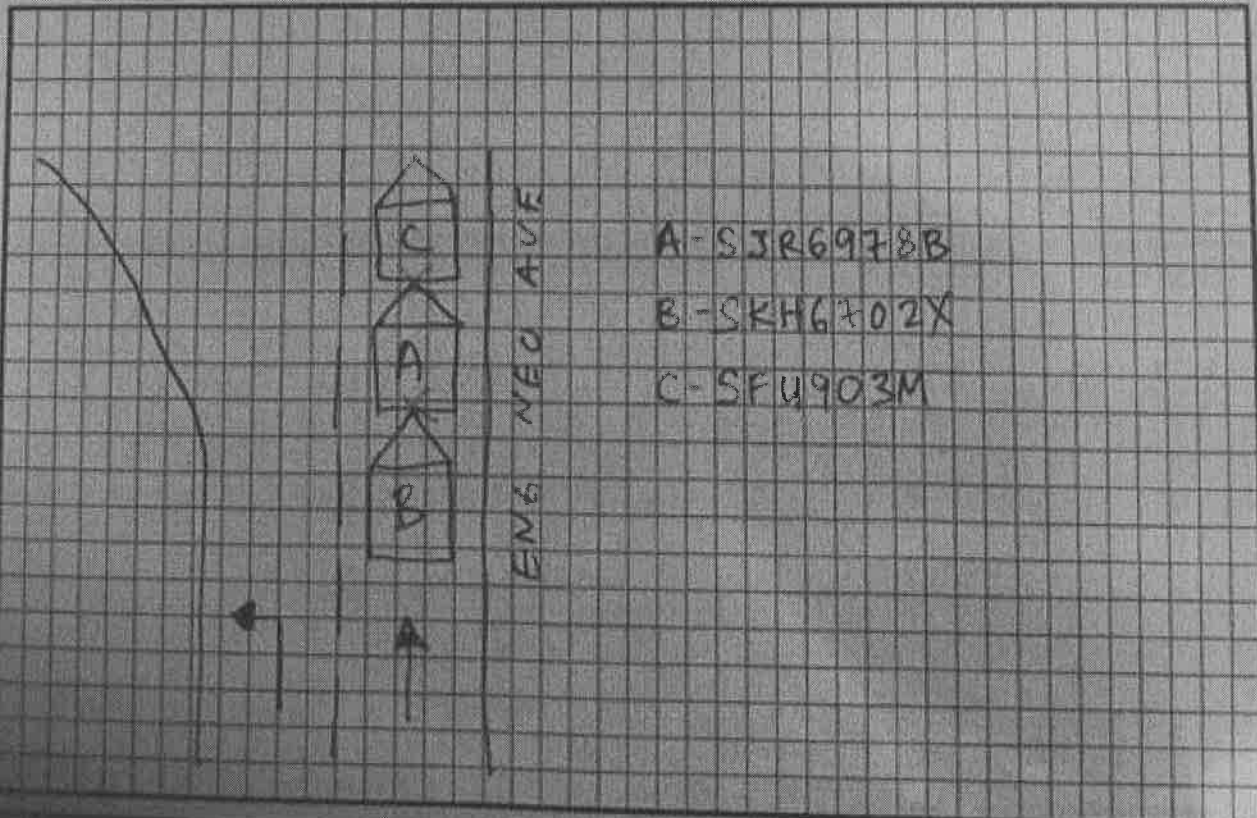 C
A
B
ENG NEO AVE
A-SJR6978B
B-SKH6702X
C-SFU903M